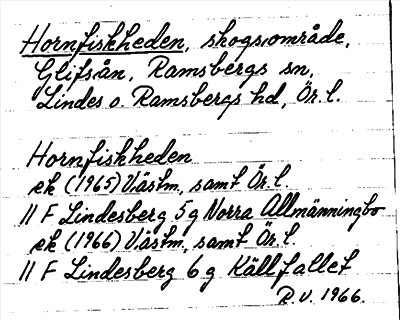 Hornfiskheden, skogsområde,
Glifsån, Ramsbergs sn,
Lindes o. Ramsbergs hd, Ör. l.
Hornfiskheden
ek (1965) Västm. samt Ör. l.
11 F Lindesberg 5 g Norra Allmänningbo
ek (1966) Västm. samt Ör. l.
11 F Lindesberg 6 g Källfallet
R.V. 1966.